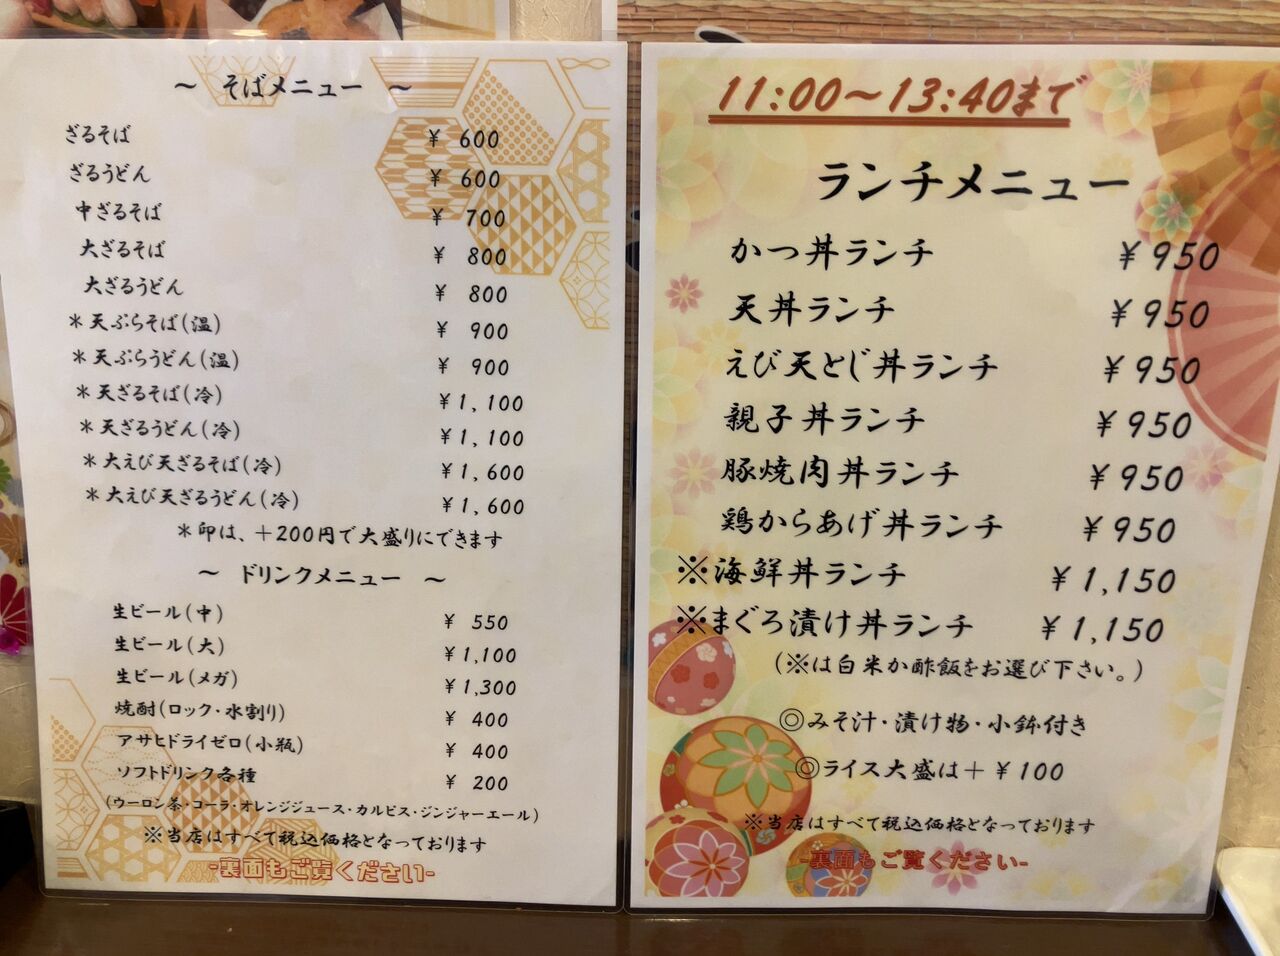 ～ そばメニュー ～
ざるそば ¥ 600
ざるうどん ¥ 600
中ざるそば ¥ 700
大ざるそば ¥ 800
大ざるうどん ¥ 800
＊天ぷらそば(温) ¥ 900
＊天ぷらうどん(温) ¥ 900
＊天ざるそば(冷) ¥1,100
＊天ざるうどん(冷) ¥1,100
＊大えび天ざるそば(冷) ¥1,600
＊大えび天ざるうどん(冷) ¥1,600
＊印は、＋200円で大盛りにできます
～ ドリンクメニュー ～
生ビール(中) ¥ 550
生ビール(大) ¥1,100
生ビール(メガ) ¥1,300
焼酎(ロック・水割り) ¥ 400
アサヒドライゼロ(小瓶) ¥ 400
ソフトドリンク各種 ¥ 200
(ウーロン茶・コーラ・オレンジジュース・カルピス・ジンジャーエール)
※当店はすべて税込価格となっております
-裏面もご覧ください-
11:00～13:40まで
ランチメニュー
かつ丼ランチ ¥950
天丼ランチ ¥950
えび天とじ丼ランチ ¥950
親子丼ランチ ¥950
豚焼肉丼ランチ ¥950
鶏からあげ丼ランチ ¥950
※海鮮丼ランチ ¥1,150
※まぐろ漬け丼ランチ ¥1,150
(※は白米か酢飯をお選び下さい。)
◎みそ汁・漬け物・小鉢付き
◎ライス大盛は＋¥100
※当店はすべて税込価格となっております
-裏面もご覧ください-